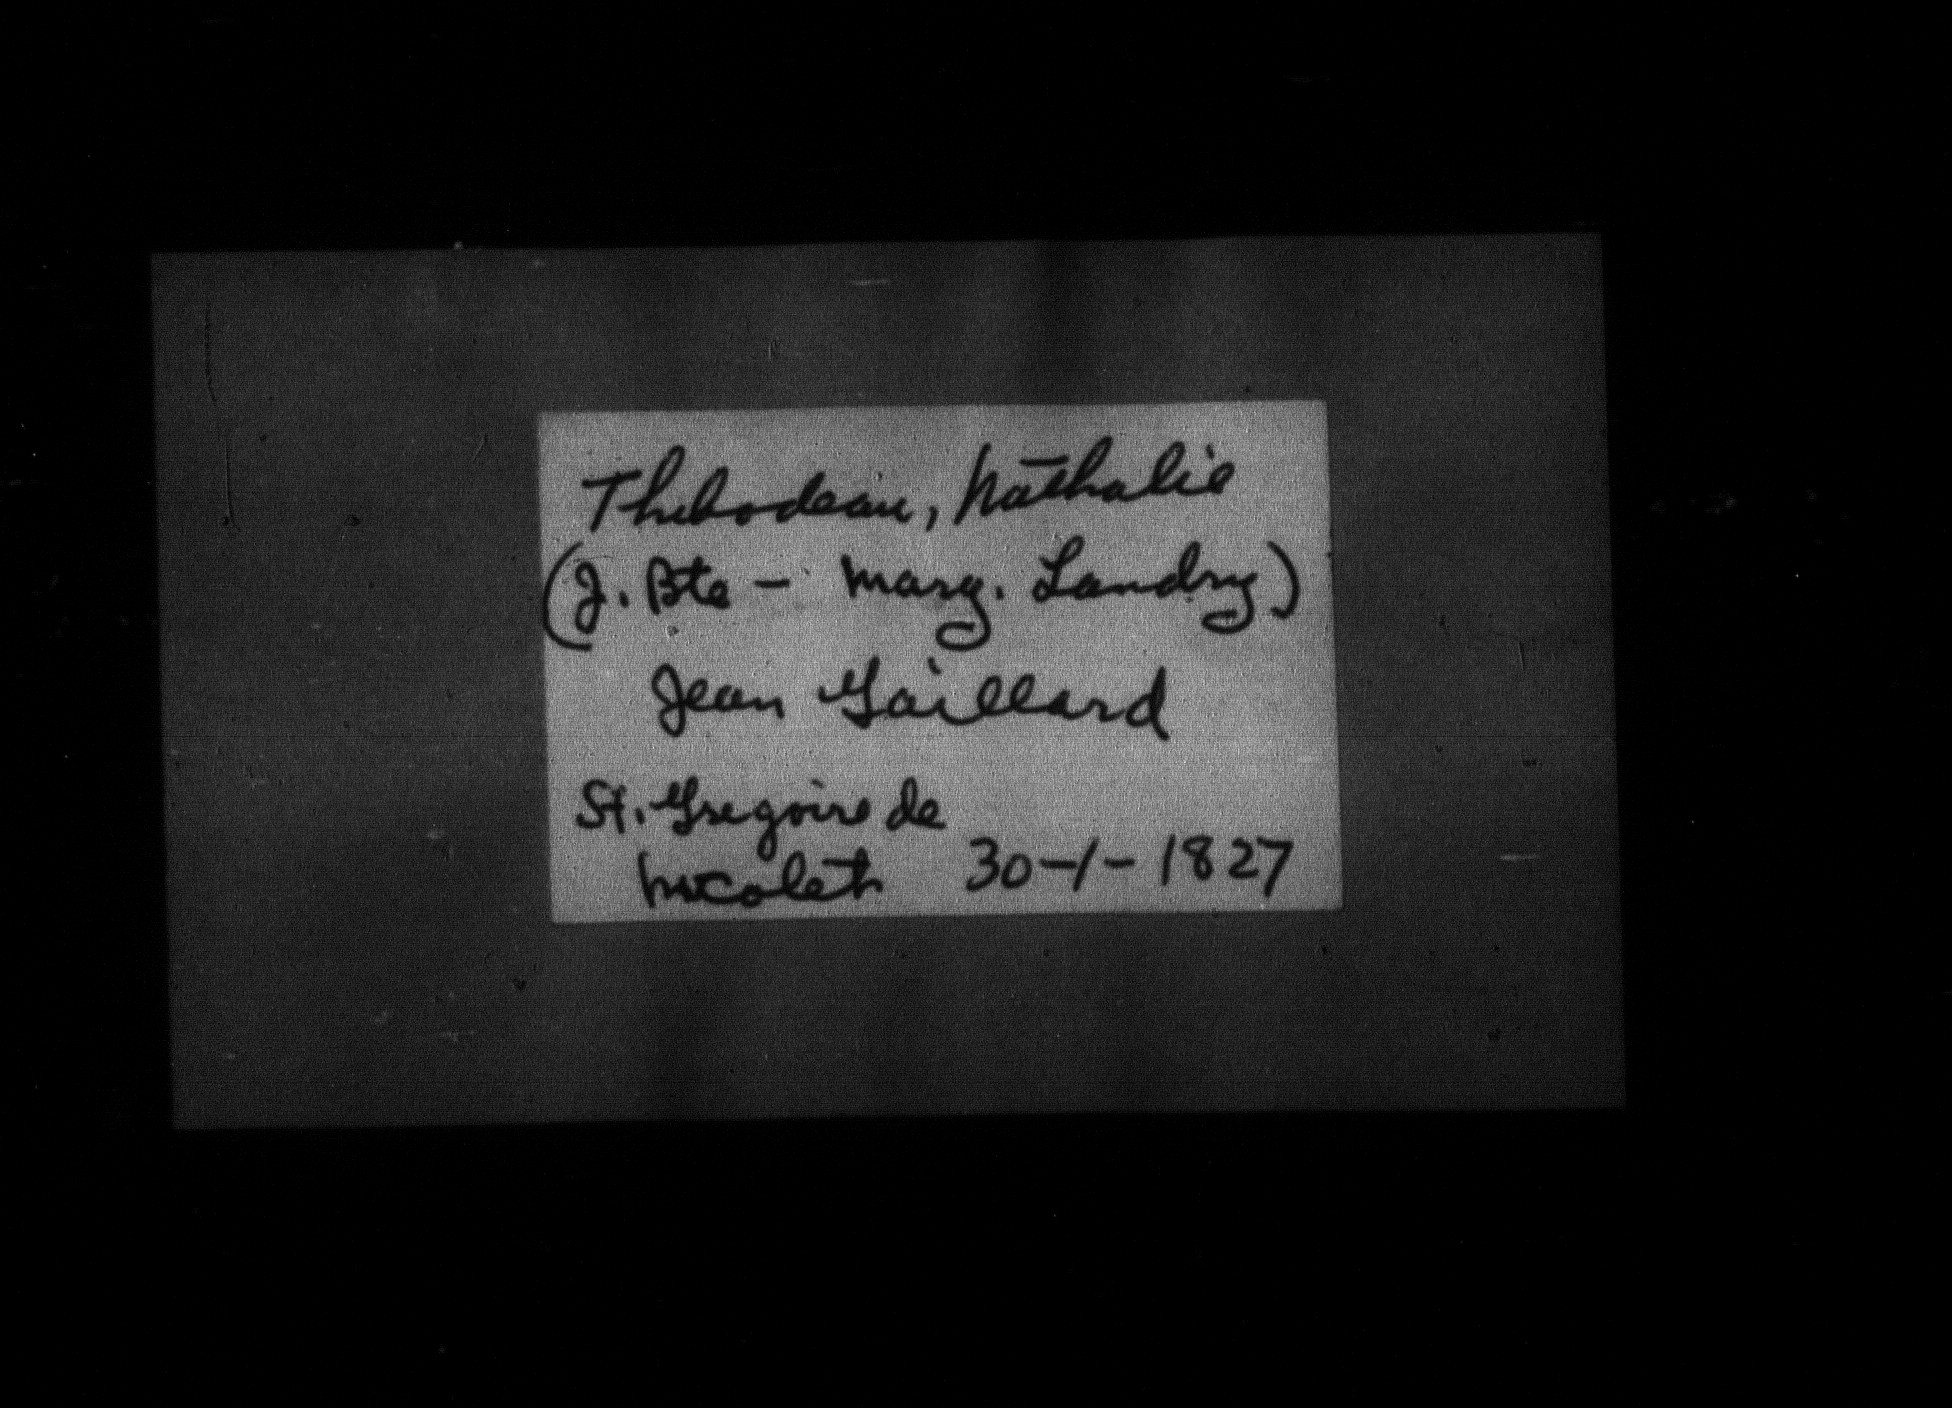 Thibodeau, Nathalie
(J. Bte - Marg. Landry)
Jean Gaillard
St. Gregoire de
Nicolet 30-1-1827